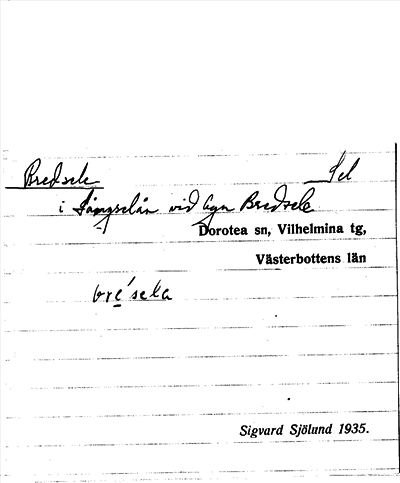 Bredsele Sel
i Långselån vid byn Bredsele
Dorotea sn, Vilhelmina tg,
Västerbottens län
bre´sela
Sigvard Sjölund 1935.